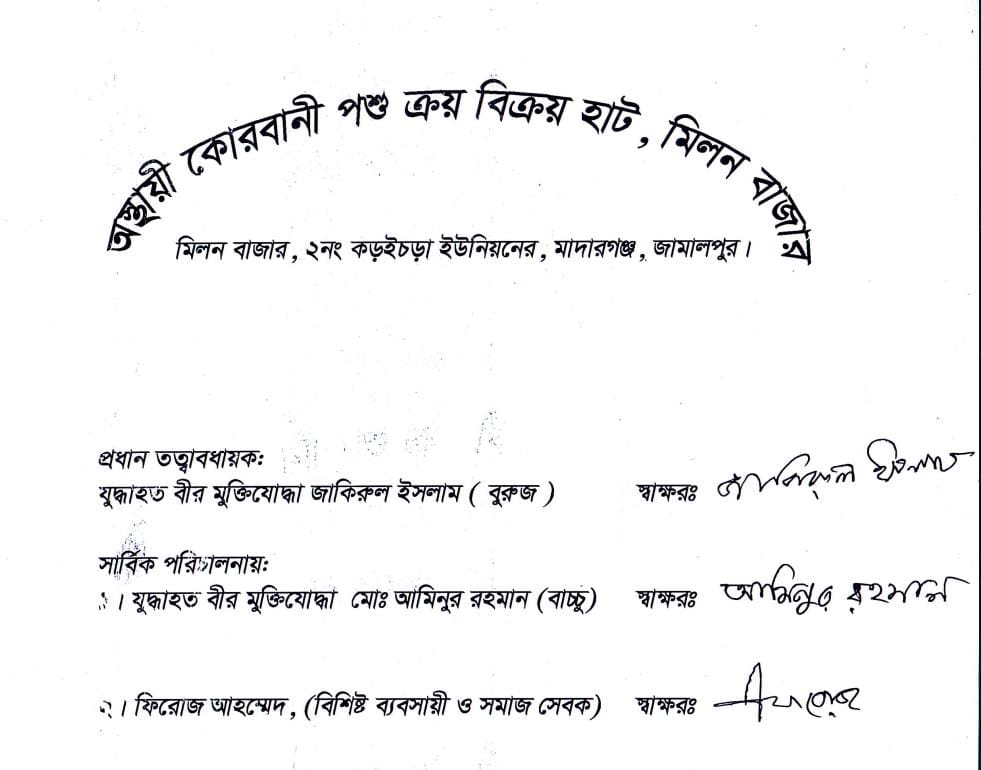 অস্থায়ী কোরবানী পশু ক্রয় বিক্রয় হাট, মিলন বাজার
মিলন বাজার, ২নং কড়ইচড়া ইউনিয়নের, মাদারগঞ্জ, জামালপুর।
প্রধান তত্বাবধায়ক:
যুদ্ধাহত বীর মুক্তিযোদ্ধা জাকিরুল ইসলাম ( বুরুজ ) স্বাক্ষরঃ জাকিরুল ইসলাম
সার্বিক পরিচালনায়:
১। যুদ্ধাহত বীর মুক্তিযোদ্ধা মোঃ আমিনুর রহমান (বাচ্চু) স্বাক্ষরঃ আমিনুর রহমান
২। ফিরোজ আহম্মেদ, (বিশিষ্ট ব্যবসায়ী ও সমাজ সেবক) স্বাক্ষরঃ